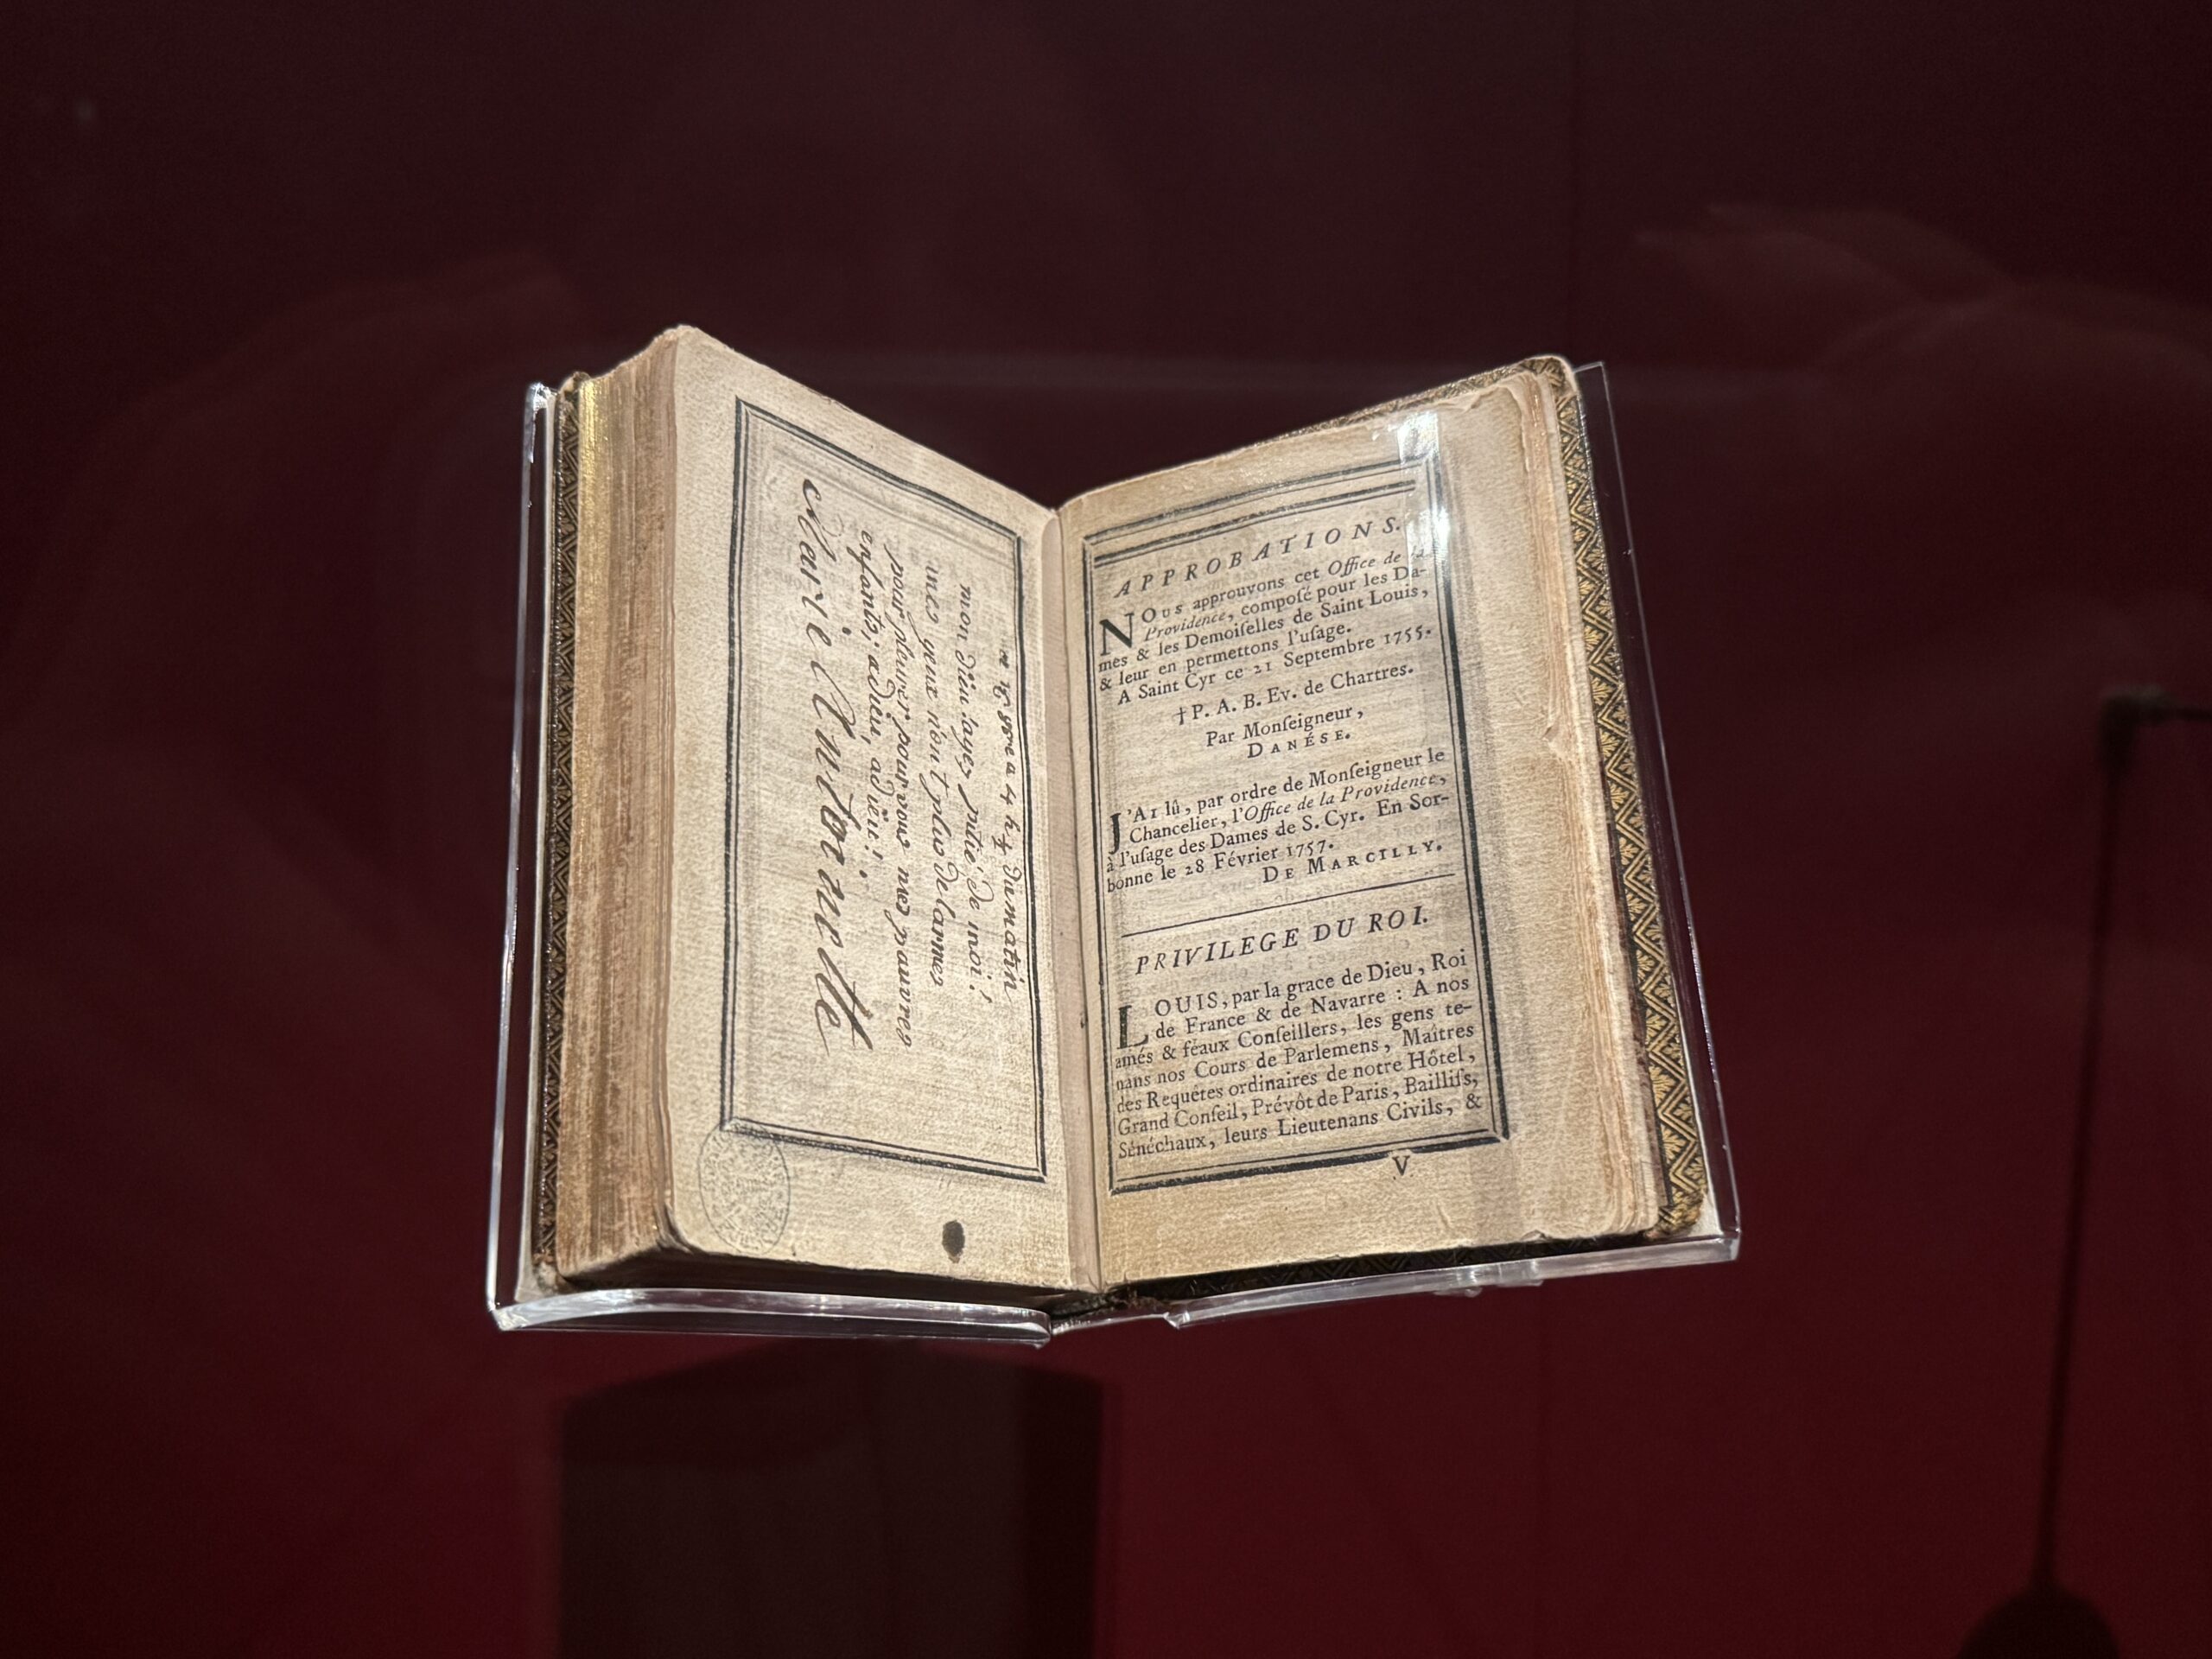 ce 16 8bre a 4 h ½ du matin
mon dieu ! ayez pitié de moi !
mes yeux n'ont plus de larmes
pour pleurer pour vous mes pauvres
enfants ; adieu, adieu !
Marie Antoinette
APPROBATIONS.
NOus approuvons cet Office de la
Providence, compoſé pour les Da-
mes & les Demoiſelles de Saint Louis,
& leur en permettons l'uſage.
A Saint Cyr ce 21 Septembre 1755.
† P. A. B. Ev. de Chartres.
Par Monſeigneur,
DANÉSE.
J'AI lû, par ordre de Monſeigneur le
Chancelier, l'Office de la Providence,
à l'uſage des Dames de S. Cyr. En Sor-
bonne le 28 Février 1757.
DE MARCILLY.
PRIVILEGE DU ROI.
LOUIS, par la grace de Dieu, Roi
de France & de Navarre : A nos
amés & féaux Conſeillers, les gens te-
nans nos Cours de Parlemens, Maîtres
des Requêtes ordinaires de notre Hôtel,
Grand Conſeil, Prévôt de Paris, Baillifs,
Sénéchaux, leurs Lieutenans Civils, &
V